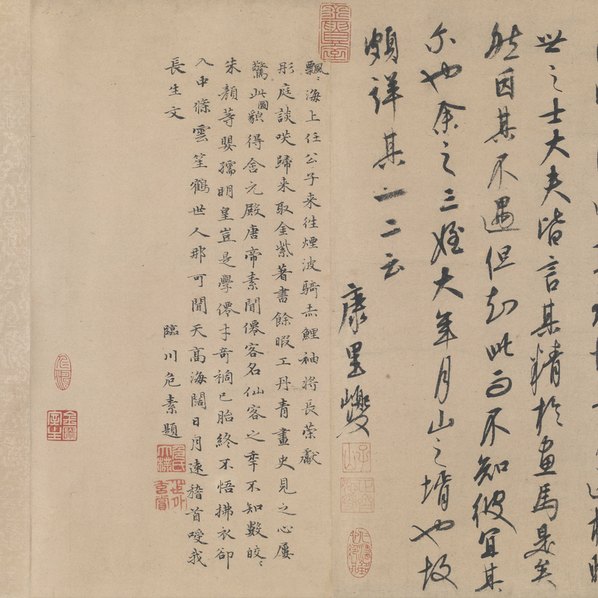 世之士大夫皆言其精於畫馬是矣
然因其不遇但知此而不知彼宜其
尔也余之三姪大年月山之壻也故
頗詳其一二云
康里巎
飄〻海上任公子來往煙波騎赤鯉袖將長策獻
彤庭談咲歸来取金紫著書餘暇工丹青畫史見之心屢
驚此圖貌得含元殿唐帝素聞僊客名仙客之年不知數皎〻
朱顏等嬰孺明皇豈是學僊才奇禍已胎終不悟拂衣卻
入中條雲笙鶴世人那可聞天高海闊日月遠稽首我
長生文
臨川危素題